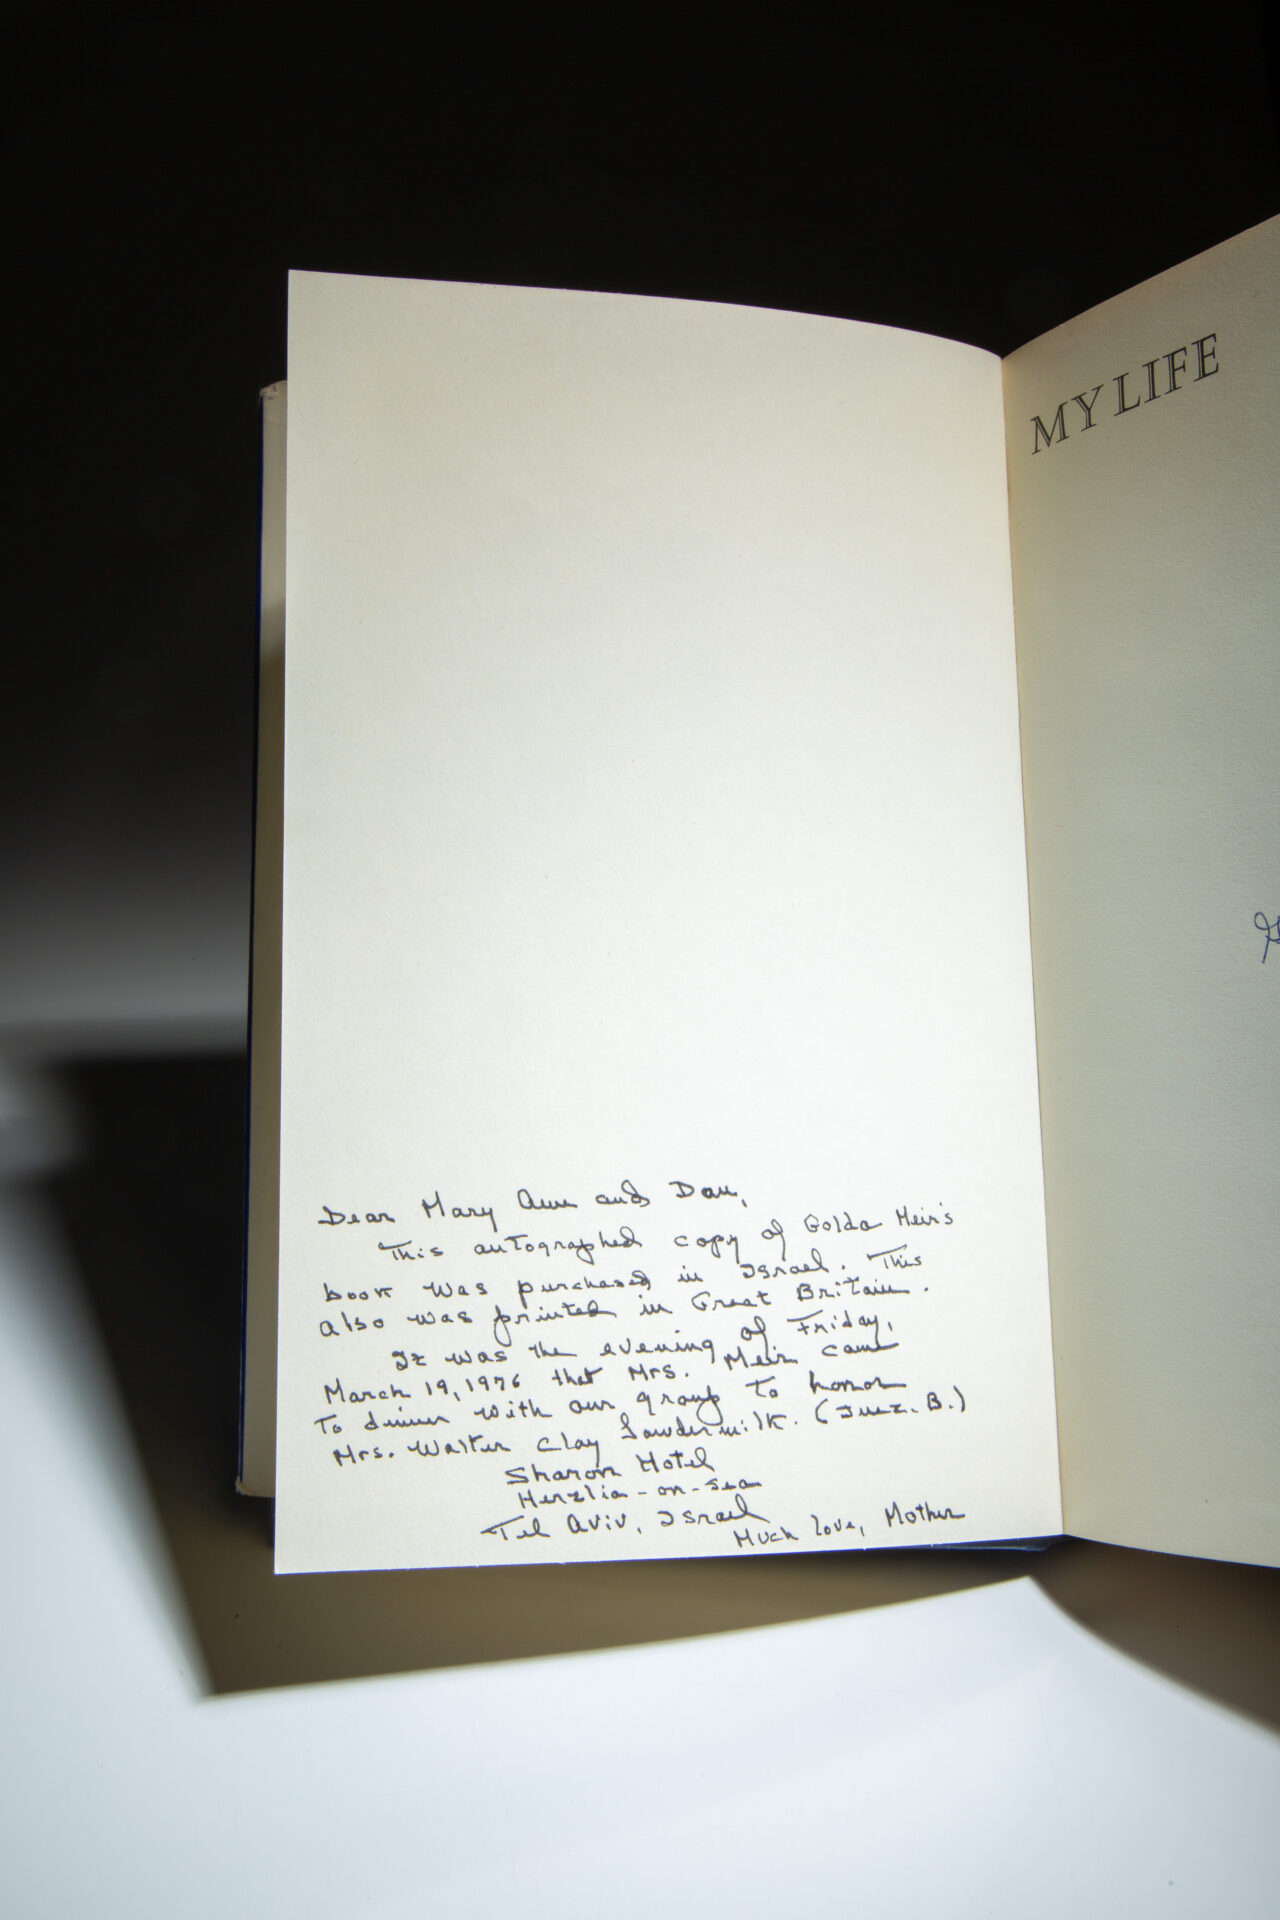 Dear Mary Ann and Dan,
This autographed copy of Golda Meir's
book was purchased in Israel. This
also was printed in Great Britain.
It was the evening of Friday,
March 19, 1976 that Mrs. Meir came
to dinner with our group to honor
Mrs. Walter Clay Lowdermilk. (Inez. B.)
Sharon Hotel
Herzlia-on-sea
Tel Aviv, Israel
Much love, Mother
MY LIFE